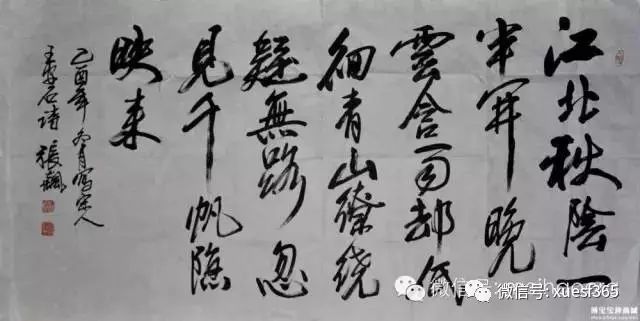 江北秋陰一
半開晚
雲含雨却低
徊青山繚繞
疑無路忽
見千帆隱
映来
乙酉年冬月寫宋人
王安石詩 張飆
微信号: xuesf365